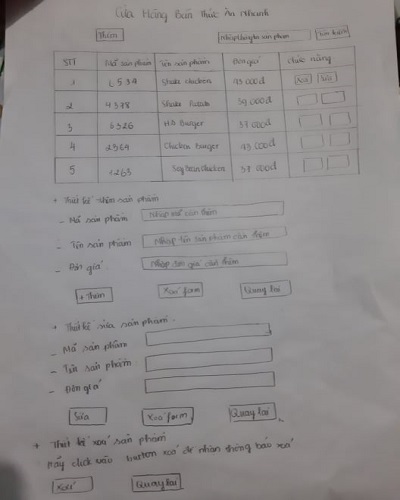 Cửa Hàng Bán Thức Ăn Nhanh
Thêm Nhập thông tin sản phẩm Tìm kiếm
STT Mã sản phẩm Tên sản phẩm Đơn giá Chức năng
1 6534 Shake chicken 43.000đ Xoá Sửa
2 4378 Shake Potato 39.000đ
3 6326 HB Burger 37.000đ
4 2564 Chicken Burger 43.000đ
5 1263 Chicken 37.000đ
+ Thiết kế thêm sản phẩm
- Mã sản phẩm Nhập mã cần thêm
- Tên sản phẩm Nhập tên sản phẩm cần thêm
- Đơn giá Nhập đơn giá cần thêm
+ Thêm Xoá form Quay lại
+ Thiết kế sửa sản phẩm.
- Mã sản phẩm
- Tên sản phẩm
- Đơn giá
Sửa Xoá form Quay lại
+ Thiết kế xoá sản phẩm
click vào button xoá để nhận thông báo xoá
Xoá Quay lại